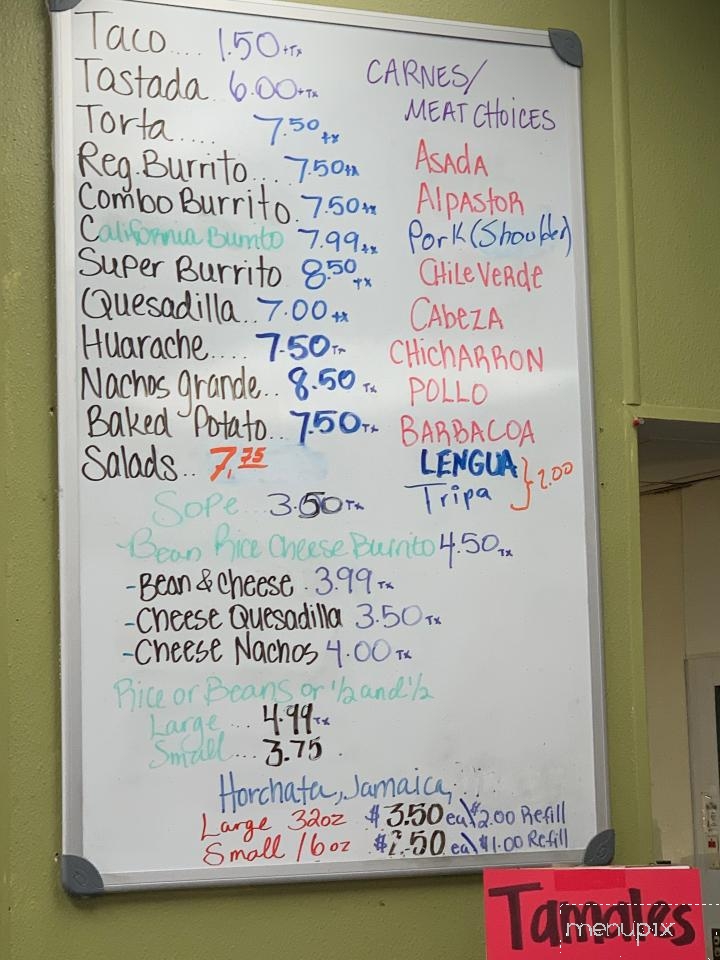 Taco.... 1.50+Tx
Tastada 6.00+Tx
Torta..... 7.50+x
Reg.Burrito... 7.50+x
Combo Burrito. 7.50+x
California Burrito 7.99+x
Super Burrito 8.50+x
Quesadilla.. 7.00+x
Huarache.... 7.50Tx
Nachos grande.. 8.50 Tx
Baked Potato.. 7.50Tx
Salads.. 7.75
CARNES/
MEAT CHOICES
ASADA
Alpastor
Pork (Shoulder)
CHiLE VeRde
CABEZA
CHichARRON
POLLO
BARBACOA
LENGUA
Tripa } 2.00
Sope 3.50Tx
-Bean Rice Cheese Burrito 4.50Tx
-Bean & Cheese . 3.99 Tx
-Cheese Quesadilla 3.50Tx
-Cheese Nachos 4.00 Tx
Rice or Beans or 1/2 and 1/2
Large ... 4.99Tx
Small ... 3.75
Horchata, Jamaica,
Large 32oz $3.50 ea\$2.00 Refill
Small 16oz $2.50 ea\$1.00 Refill
Tamales
menupix